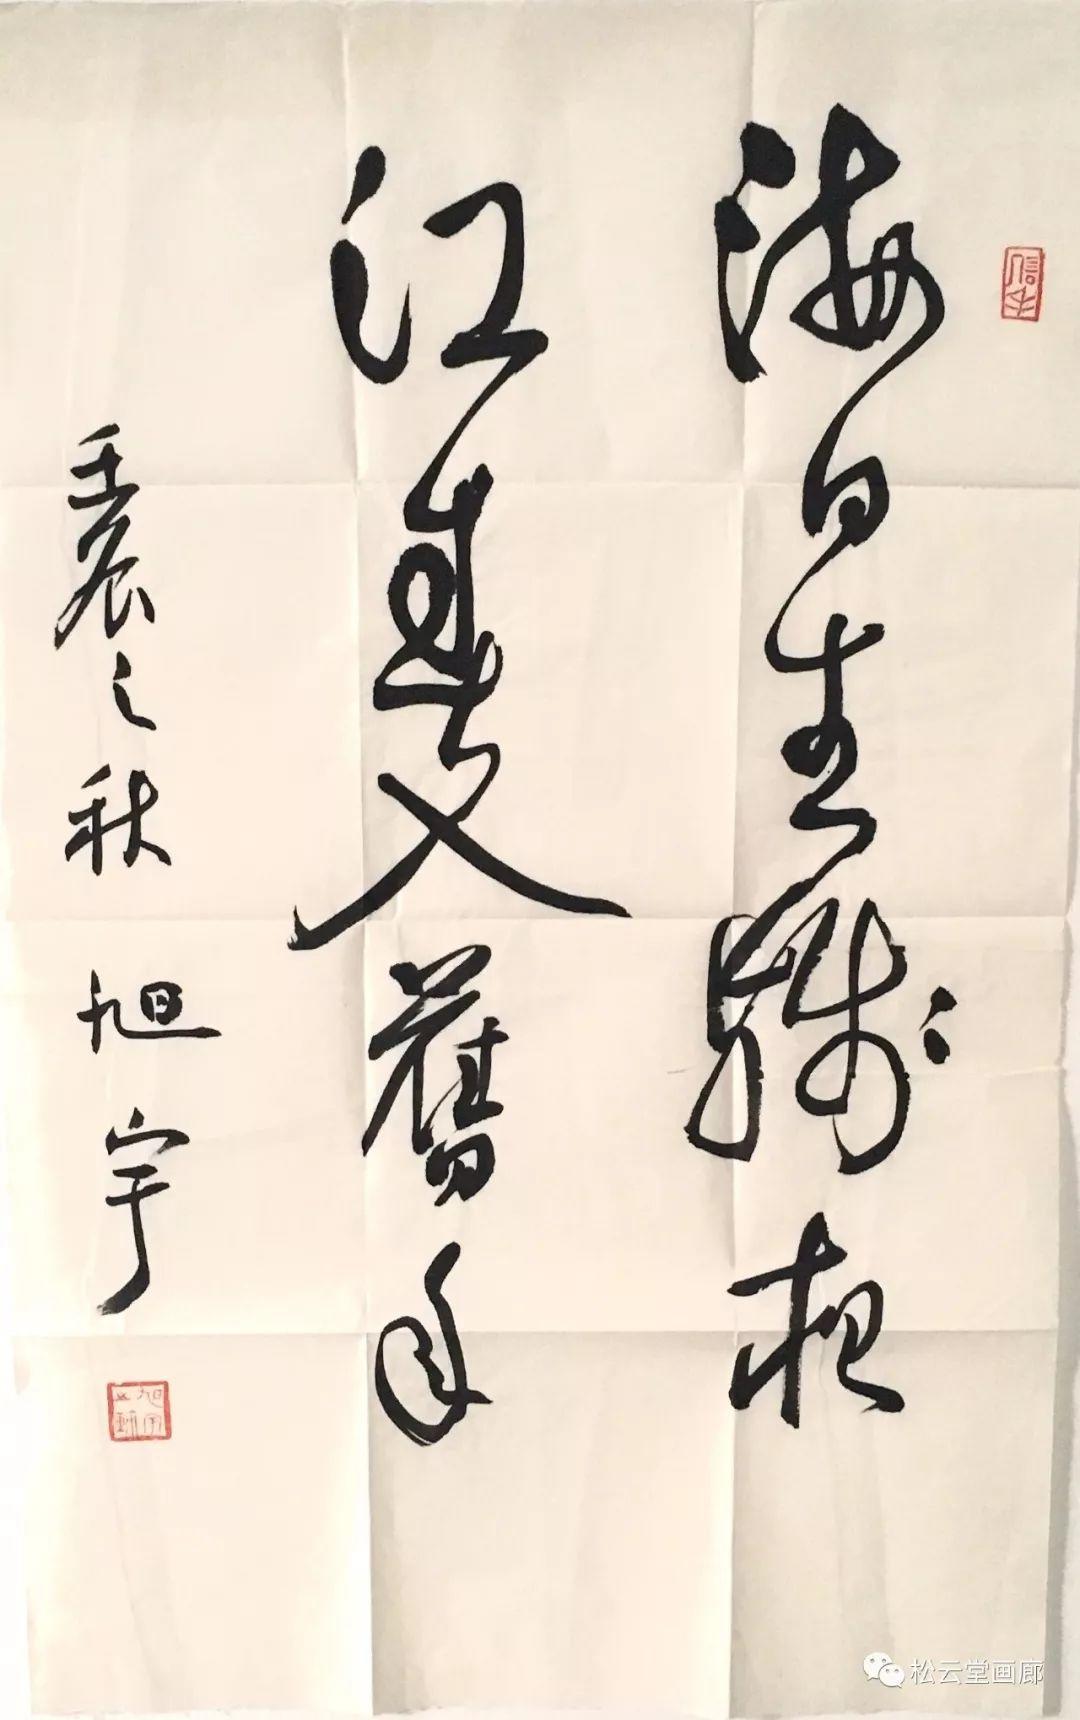 海日生殘夜
江春入舊年
壬辰之秋 旭宇
松云堂画廊